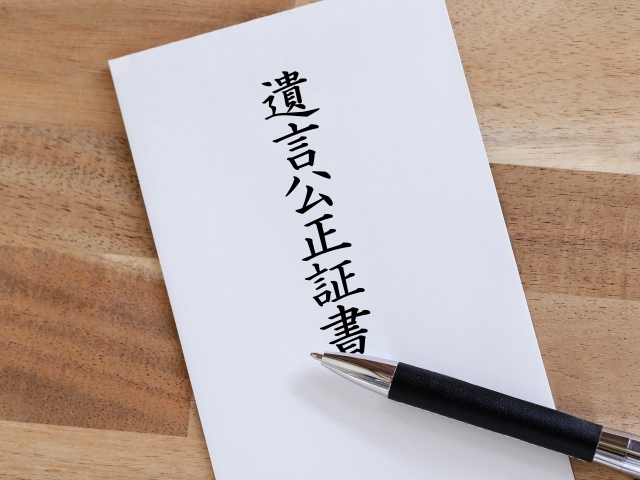 遺言公正証書